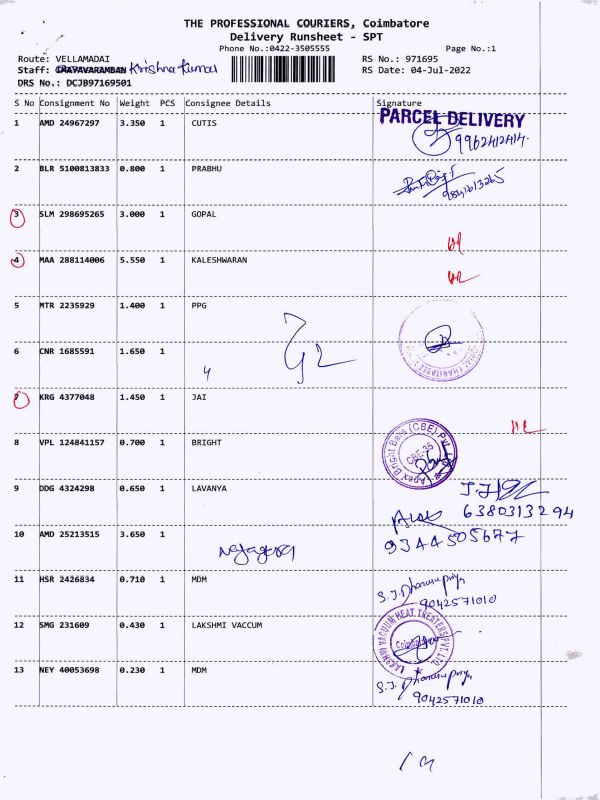 THE PROFESSIONAL COURIERS, Coimbatore
Delivery Runsheet - SPT
Phone No.:0422-3505555 Page No.:1
Route: VELLAMADAI RS No.: 971695
Staff: Krishna Kumar RS Date: 04-Jul-2022
DRS No.: DCJB97169501
S No Consignment No Weight PCS Consignee Details Signature
PARCEL DELIVERY
1 AMD 24967297 3.350 1 CUTIS
9962412414
2 BLR 5100813833 0.800 1 PRABHU
9841613265
3 SLM 298695265 3.000 1 GOPAL
4 MAA 288114006 5.550 1 KALESHWARAN
5 MTR 2235929 1.400 1 PPG
6 CNR 1685591 1.650 1
7 KRG 4377048 1.450 1 JAI
8 VPL 124841157 0.700 1 BRIGHT
Apex Bright Bars (CBE) Pvt. Ltd.
CBE-35
9 DDG 4324298 0.650 1 LAVANYA
6380313294
10 AMD 25213515 3.650 1
9344505677
11 HSR 2426834 0.710 1 MDM S.J. Dharusupriya
9042571010
12 SMG 231609 0.430 1 LAKSHMI VACCUM
LAKSHMI VACUUM HEAT TREATERS PVT. LTD.
13 NEY 40053698 0.230 1 MDM S.J. Dharusupriya
9042571010